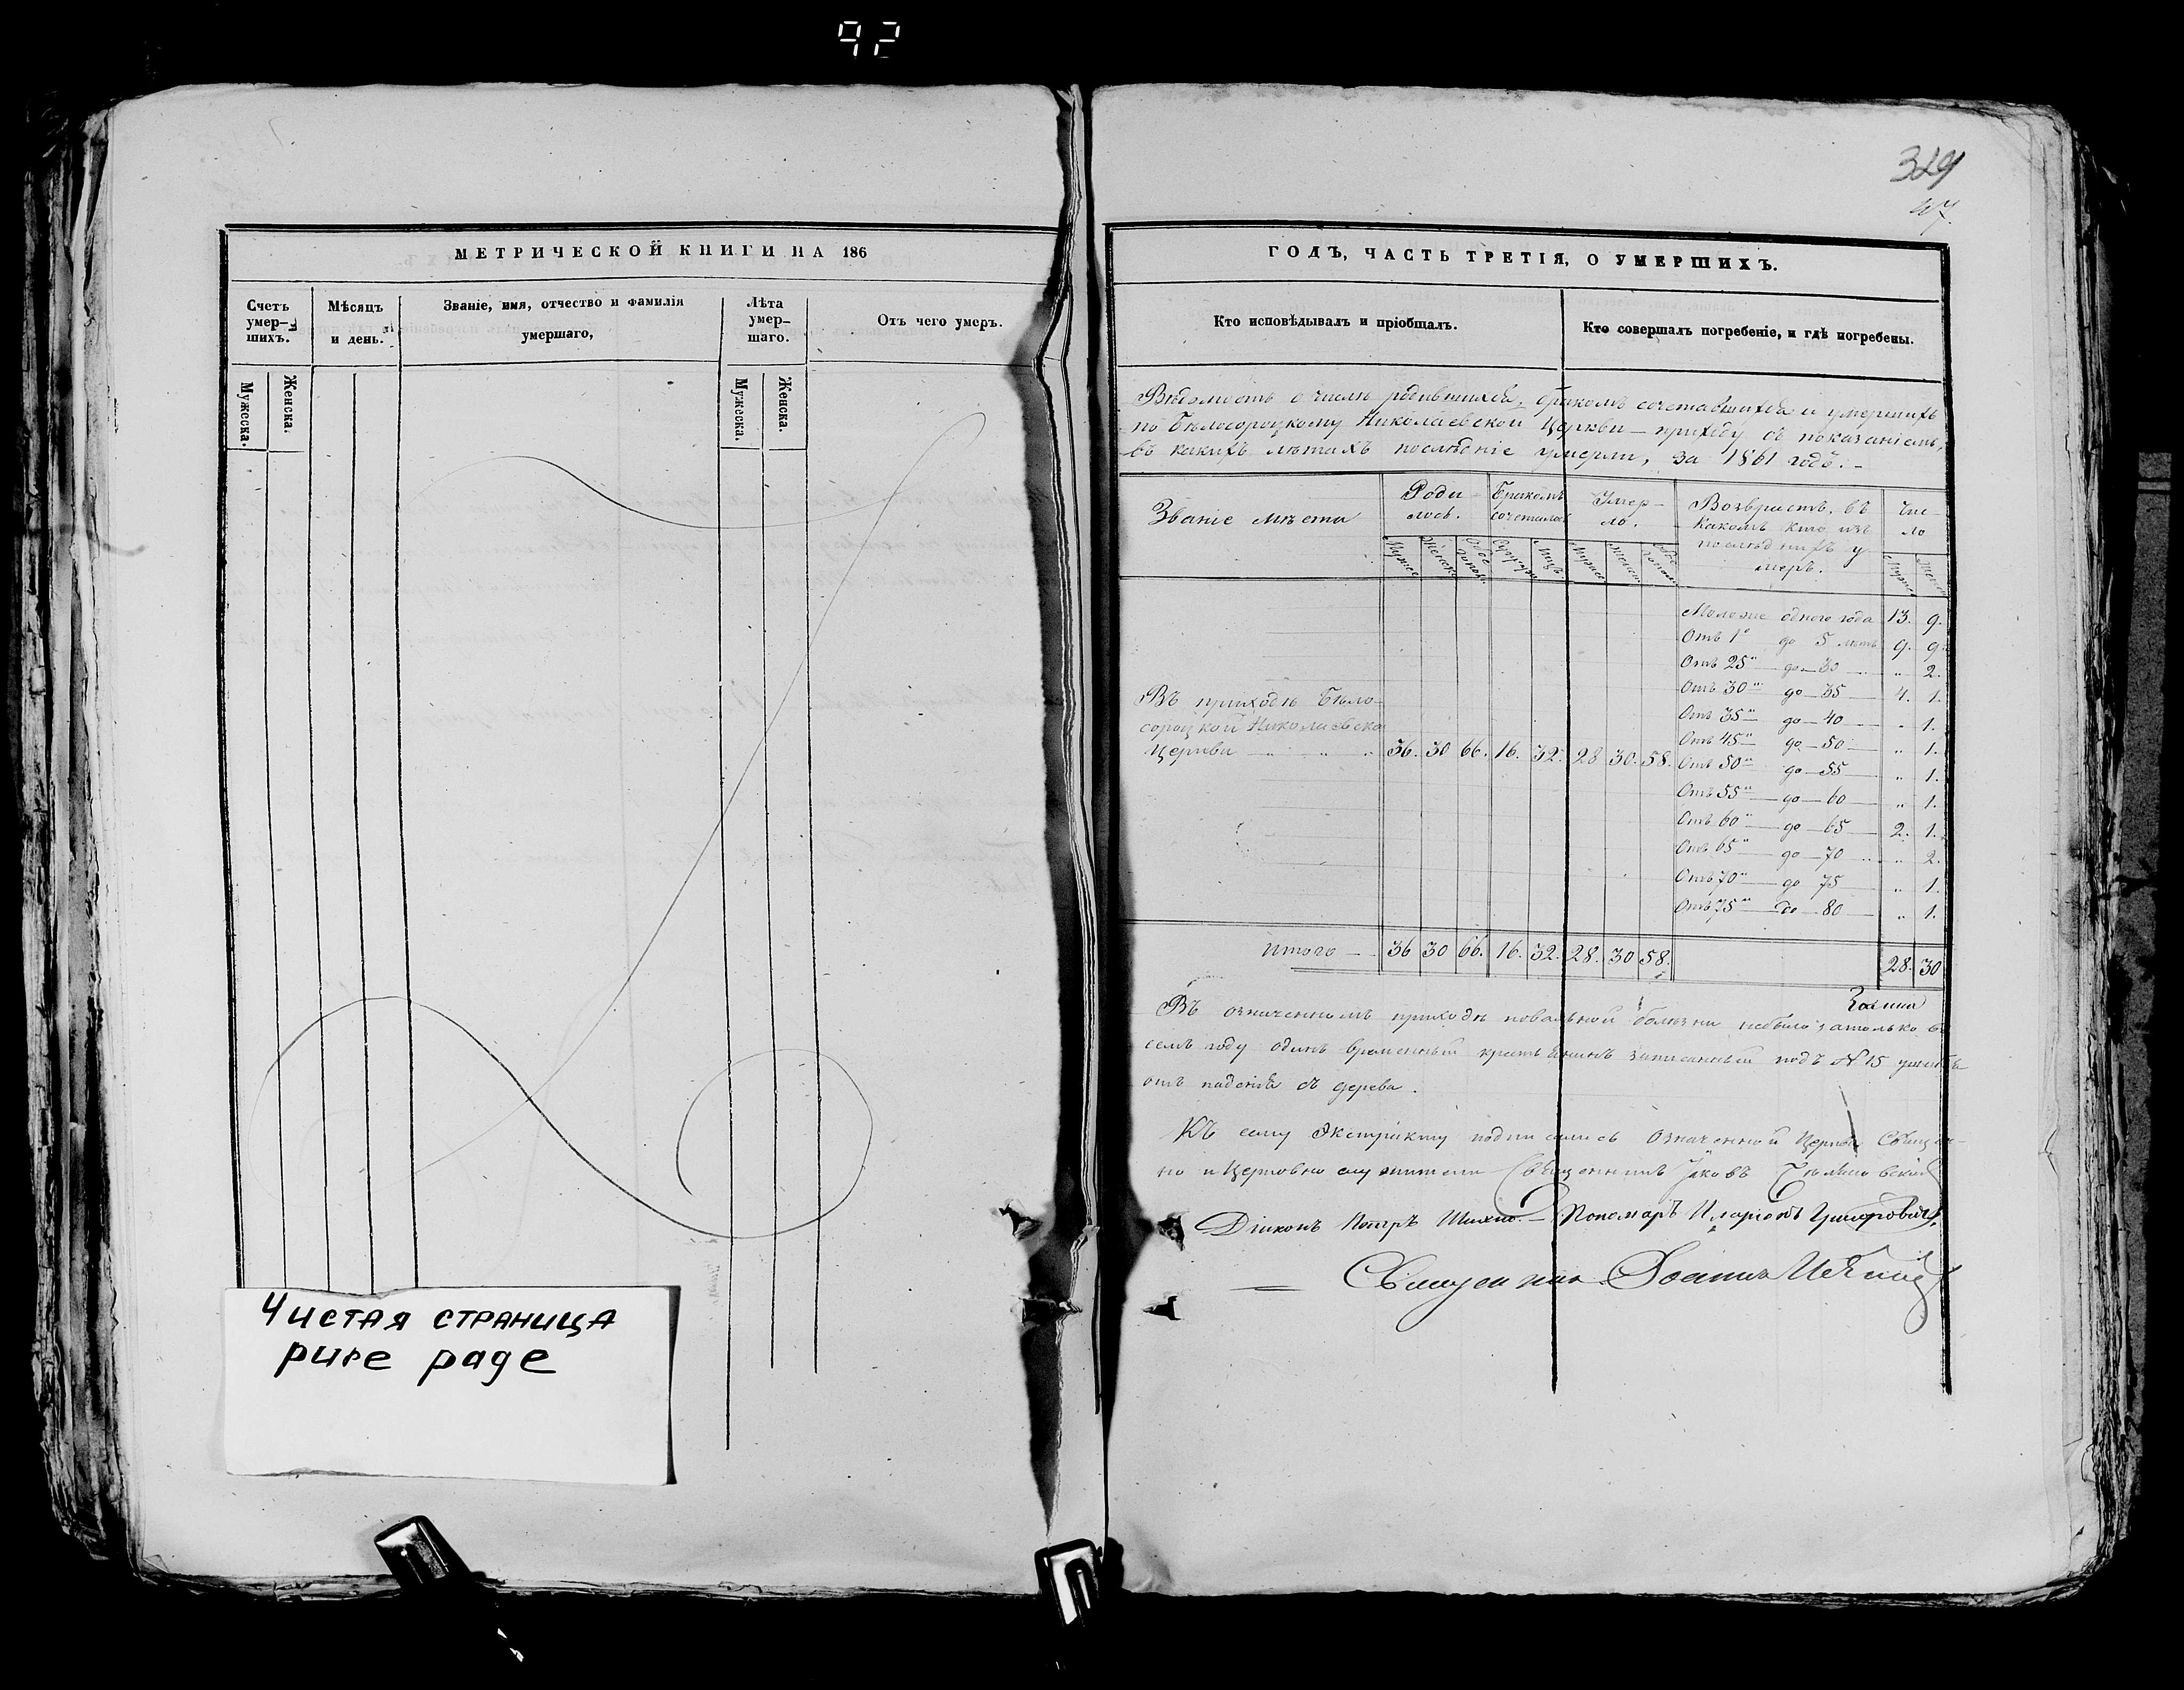 92
329
47
МЕТРИЧЕСКОЙ КНИГИ НА 186
Счетъ умер-шихъ.
Мѣсяцъ и день.
Званіе, имя, отчество и фамилія умершаго,
Лѣта умер-шаго.
Отъ чего умеръ.
Мужеска. Женска. Мужеска. Женска.
Чистая страница
pure page
ГОДЪ, ЧАСТЬ ТРЕТІЯ, О УМЕРШИХЪ.
Кто исповѣдывалъ и пріобщалъ.
Кто совершалъ погребеніе, и гдѣ погребены.
Вѣдомость о числѣ родившихся, бракомъ сочетавшихся и умершихъ
по Бѣлосороцкому Николаевской Церкви – приходу съ показаніемъ,
въ какихъ лѣтахъ послѣдніе умерли, за 1861 годъ. –
Званіе мѣста
Роди-лось.
Бракомъ сочеталось
Умер-ло.
Возврастъ, въ какомъ кто изъ послѣднихъ умеръ.
Чис-ло
Младше одного года 13. 9.
Отъ 1" до 5 лѣтъ 9. 9.
Отъ 25" до 30 " 2.
Отъ 30" до 35 4. 1.
Отъ 35" до 40 " 1.
Отъ 45" до 50 " 1.
Отъ 50" до 55 " 1.
Отъ 55" до 60 " 1.
Отъ 60" до 65 2. 1.
Отъ 65" до 70 " 2.
Отъ 70" до 75 " 1.
Отъ 75" до 80 " 1.
Въ приходѣ Бѣло-
сороцкой Николаевской
Церкви 36. 30 66. 16. 32. 28 30. 58.
Итого 36 30 66. 16. 32. 28. 30 58. 28. 30
Въ означенномъ приходѣ повальной болѣзни небыло, а только въ
семъ году одинъ временный крестьянинъ записанный подъ № 15
отъ паденія съ дерева.
Къ сему Экстракту подписались означенной Церкви Священ-
но и Церковно служители Священникъ Іаковъ
Діаконъ Петръ – Пономаръ Иларіонъ
Священникъ Іоаннъ